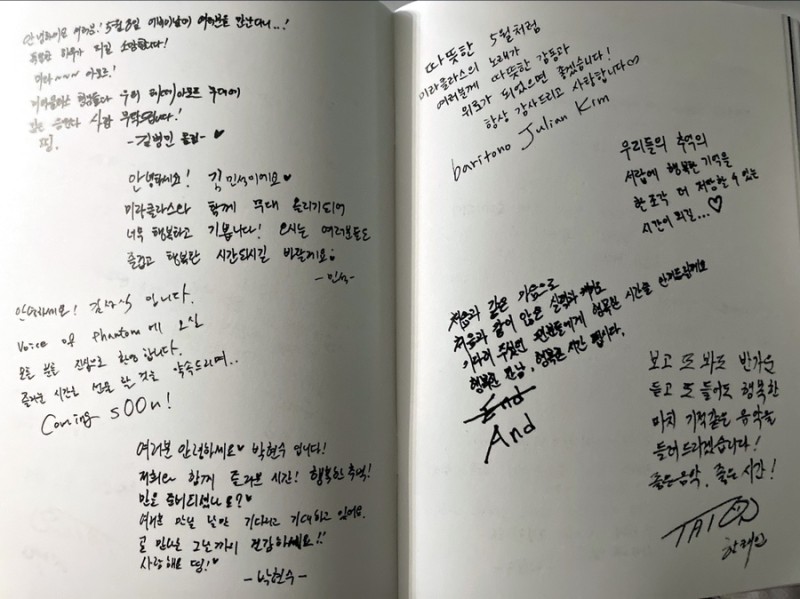 안녕하세요 여러분! 5월 8일 어버이날에 여러분을 만난다니..!
특별한 하루가 되길 소망합니다!
미라~~~ 아모르!
미라클라스 형님들과 우리 레떼아모르 무대에
많은 응원과 사랑 부탁드립니다!
띵.
-김병민 올림- ♥
안녕하세요! 김민석이에요 ♥
미라클라스와 함께 무대 올리게되어
너무 행복하고 기쁩니다! 오시는 여러분들도
즐겁고 행복한 시간되시길 바랄게요
-민석-
안녕하세요! 길병민 입니다.
Voice of Phantom에 오신
모든 분을 진심으로 환영합니다.
즐거운 시간을 선물 할 것을 약속드리며..
Coming sOOn!
여러분 안녕하세요♥ 박현수 입니다!
저희와 함께 즐거운 시간! 행복한 추억!
만들 준비되셨나요?♥
여러분 만날 날만 기다리고 기대하고 있어요.
곧 만날 그날까지 건강하세요!!
사랑해요 띵!♥
-박현수-
따뜻한 5월처럼
미라클라스의 노래가
여러분께 따뜻한 감동과
위로가 되었으면 좋겠습니다!
항상 감사드리고 사랑합니다♡
baritono Julian Kim
우리들의 추억의
서랍에 행복한 기억을
한 조각 더 저장할 수 있는
시간이 되길...♡
처음과 같은 마음으로
처음과 같이 않은 실력과 매력
기다려 주셨던 팬분들에게 행복한 시간을 안겨드릴게요
행복한 만남, 행복한 시간 됩시다.
End
And
보고 또 봐도 반가운
듣고 또 들어도 행복한
마치 기적같은 음악을
들려드리겠습니다!
좋은음악, 좋은시간!
TAI
한태인